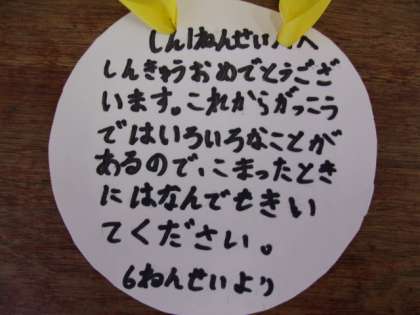 しん1ねんせい へ
しんきゅうおめでとうござ
います。これからがっこう
ではいろいろなことが
あるので、こまったとき
にはなんでもきい
てください。
6ねんせいより